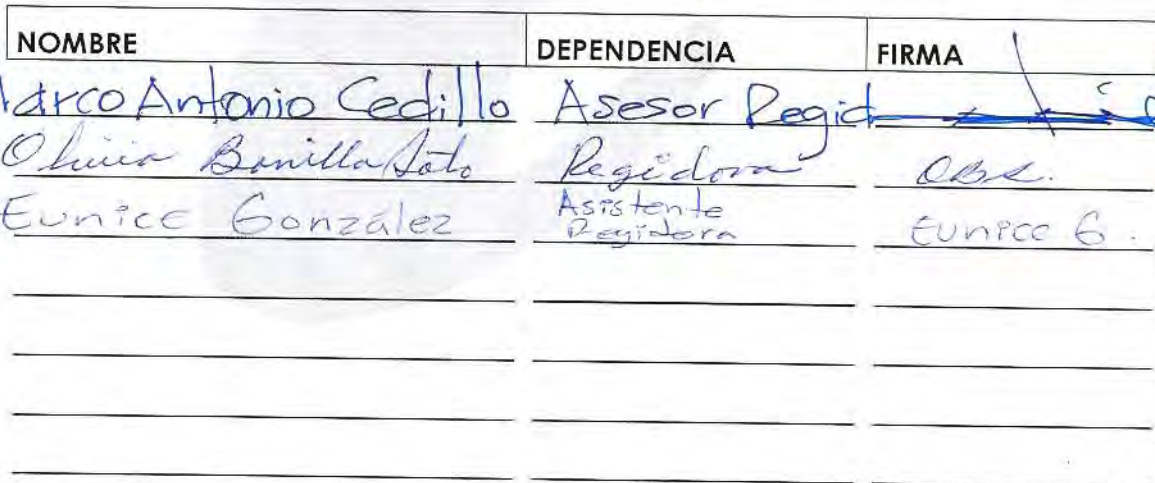 NOMBRE DEPENDENCIA FIRMA
Marco Antonio Cedillo Asesor Regid
Olivia Bonilla Soto Regidora OBS.
Eunice González Asistente Regidora Eunice G.